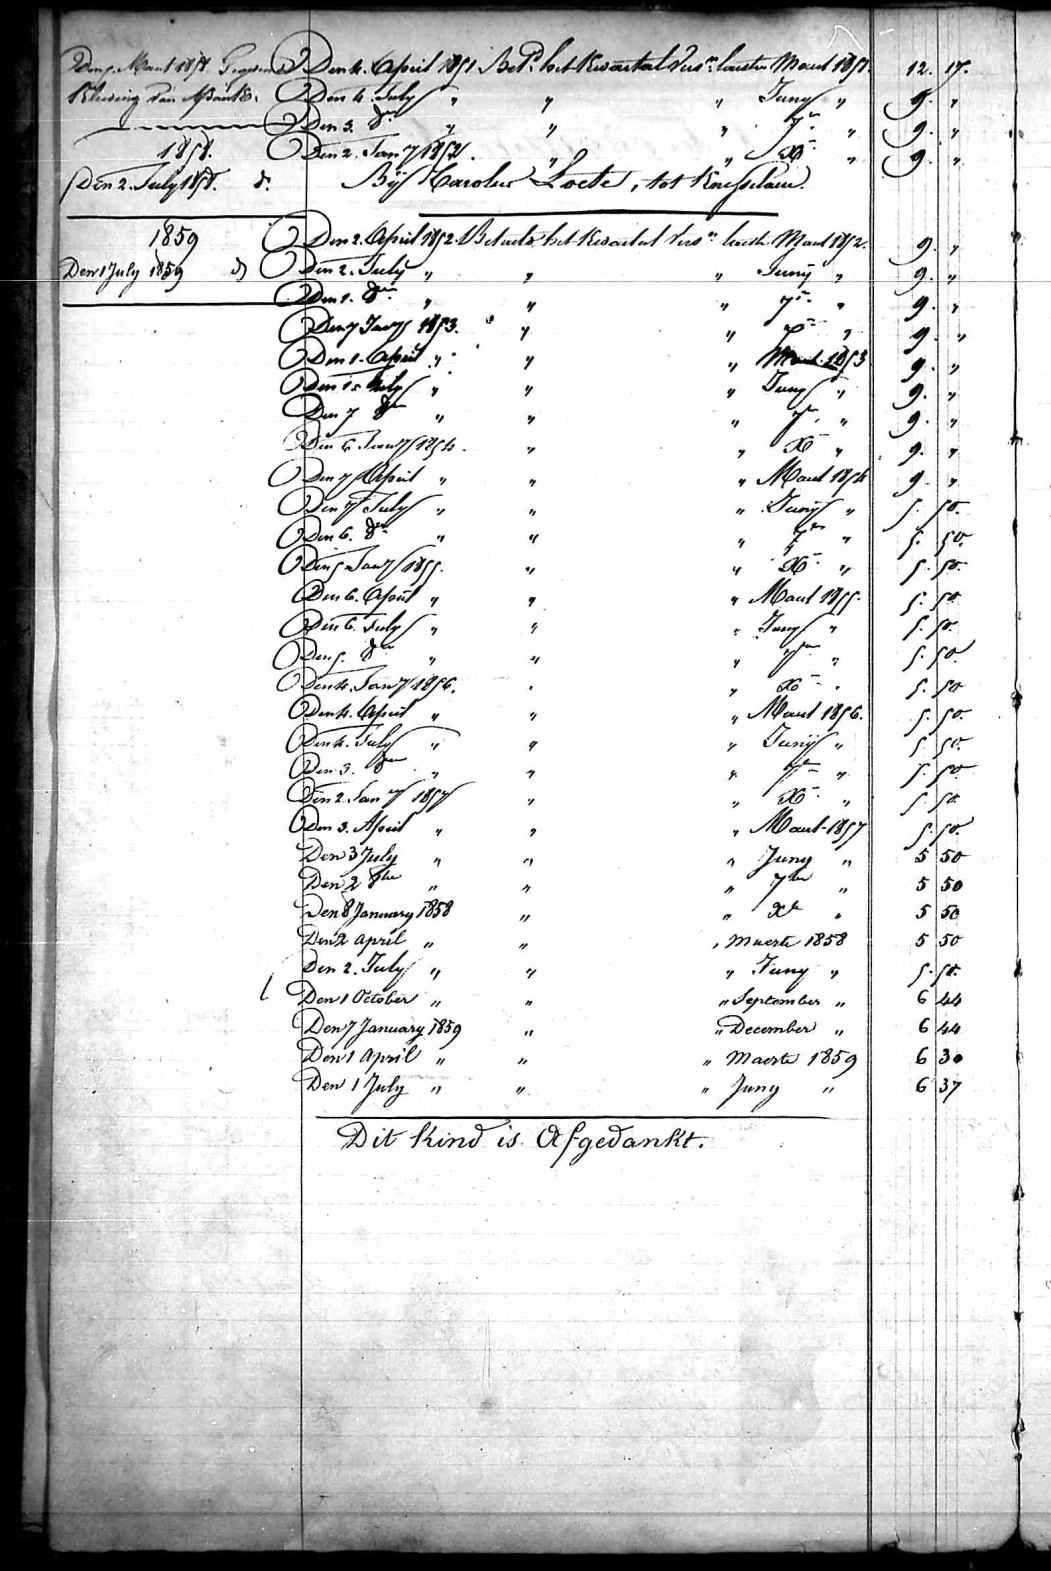 Den 4. April 1851 Bet.d het Kwartal vers.n laesten Maart 1851. 12. 17.
Kleeding van
Den 4. July " " " Juny " 9. "
Den 3. 8er " " " 7er " 9. "
1858. Den 2. Jany 1852. " " Xr " 9. "
Den 2. July 1858. d.o Bij Carolus Loete, tot Knesselare.
1859 Den 2. April 1852 Betaelt het Kwartal vers.n laeste Maart 1852. 9. "
Den 1 July 1859 d.o Den 2. July " " " Juny " 9. "
Den 1. 8er " " " 7er " 9. "
Den 7 Jany 1853. " " Xr " 9. "
Den 1. April " " " Maart 1853 9. "
Den 1 July " " " Juny " 9. "
Den 7 8er " " " 7er " 9. "
Den 6 Jany 1854. " " Xr " 9. "
Den 7 April " " " Maart 1854 9. "
Den 7 July " " " Juny " 5. 50.
Den 6. 8er " " " 7er " 5. 50.
Den 5 Jany 1855. " " Xr " 5. 50.
Den 6. April " " " Maart 1855. 5. 50
Den 6. July " " " Juny " 5. 50.
Den 5. 8er " " " 7er " 5. 50.
Den 4. Jany 1856. " " Xr " 5. 50
Den 4. April " " " Maart 1856. 5. 50.
Den 4. July " " " Juny " 5. 50.
Den 3. 8er " " " 7er " 5. 50.
Den 2. Jany 1857 " " Xr " 5. 50.
Den 3. April " " " Maart 1857 5. 50.
Den 3 July " " " Juny " 5 50
Den 2 8ber " " " 7ber " 5 50
Den 8 January 1858 " " Xr " 5 50
Den 2 april " " " maerte 1858 5 50
Den 2. July " " " Juny " 5. 50.
Den 1 October " " " September " 6 44
Den 7 January 1859 " " December " 6 44
Den 1 april " " " maerte 1859 6 30
Den 1 July " " " Juny " 6 37
Dit kind is Afgedankt.